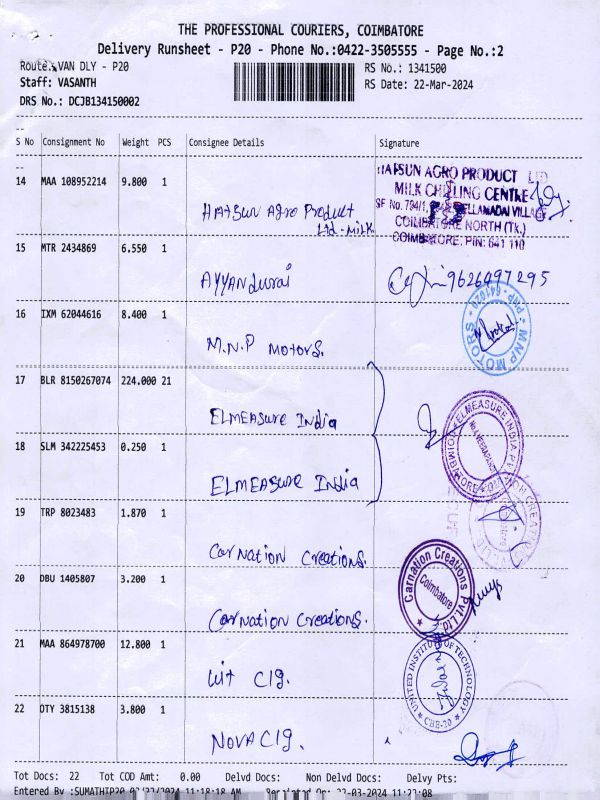 THE PROFESSIONAL COURIERS, COIMBATORE
Delivery Runsheet - P20 - Phone No.:0422-3505555 - Page No.:2
Route: VAN DLY - P20
RS No.: 1341500
Staff: VASANTH
RS Date: 22-Mar-2024
DRS No.: DCJB134150002
S No Consignment No Weight PCS Consignee Details Signature
14 MAA 108952214 9.800 1
HATSUN AGRO PRODUCT LTD
MILK CHILLING CENTRE
SF No. 794/1,
VELLAMADAI VILLAGE
COIMBATORE NORTH (TK.)
COIMBATORE. PIN: 641 110
Hatsun Agro Product
Ltd - Milk
15 MTR 2434869 6.550 1
Ayyandurai
9626497295
16 IXM 62044616 8.400 1
M.N.P Motors.
MNP MOTORS
17 BLR 8150267074 224.000 21
ELMEASURE India
ELMEASURE INDIA PV
18 SLM 342225453 0.250 1
ELMEASURE India
19 TRP 8023483 1.870 1
Carnation Creations.
20 DBU 1405807 3.200 1
Carnation Creations.
Carnation Creations Pvt Ltd
Coimbatore
21 MAA 864978700 12.800 1
Uit Clg.
UNITED INSTITUTE OF TECHNOLOGY
CBE-20
22 OTY 3815138 3.800 1
NOVA Clg.
Tot Docs: 22 Tot COD Amt: 0.00 Delvd Docs: Non Delvd Docs: Delvy Pts:
Entered By :SUMATHIP20 03/22/2024 11:18:18 AM Reprinted On 22-03-2024 11:22:08